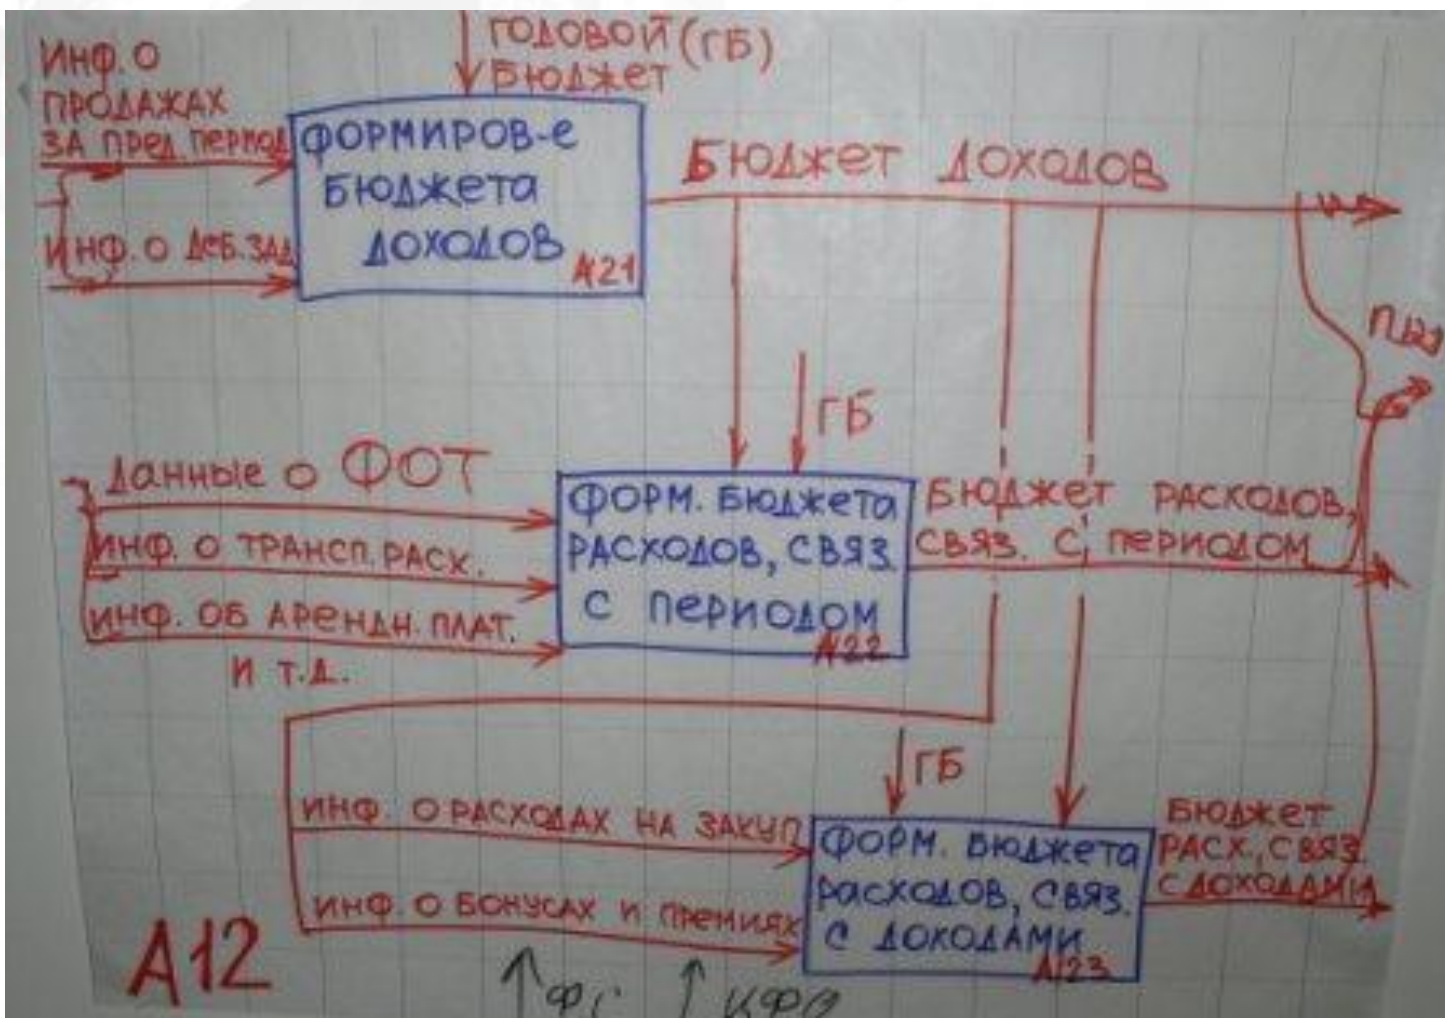 ГОДОВОЙ (ГБ)
БЮДЖЕТ
ИНФ. О
ПРОДАЖАХ
ЗА ПРЕД. ПЕРИОД
ИНФ. О ДЕБ. ЗАД
ФОРМИРОВ-е
БЮДЖЕТА
ДОХОДОВ
А21
БЮДЖЕТ ДОХОДОВ
ГБ
Данные о ФОТ
ИНФ. О ТРАНСП. РАСХ.
ИНФ. ОБ АРЕНДН. ПЛАТ.
И Т.Д.
ФОРМ. БЮДЖЕТА
РАСХОДОВ, СВЯЗ.
С ПЕРИОДОМ
А22
БЮДЖЕТ РАСХОДОВ,
СВЯЗ. С ПЕРИОДОМ
ГБ
ИНФ. О РАСХОДАХ НА ЗАКУП
ИНФ. О БОНУСАХ И ПРЕМИЯХ
ФОРМ. БЮДЖЕТА
РАСХОДОВ, СВЯЗ.
С ДОХОДАМИ
А123
БЮДЖЕТ
РАСХ., СВЯЗ.
С ДОХОДАМИ
А12
ФС ЦФО